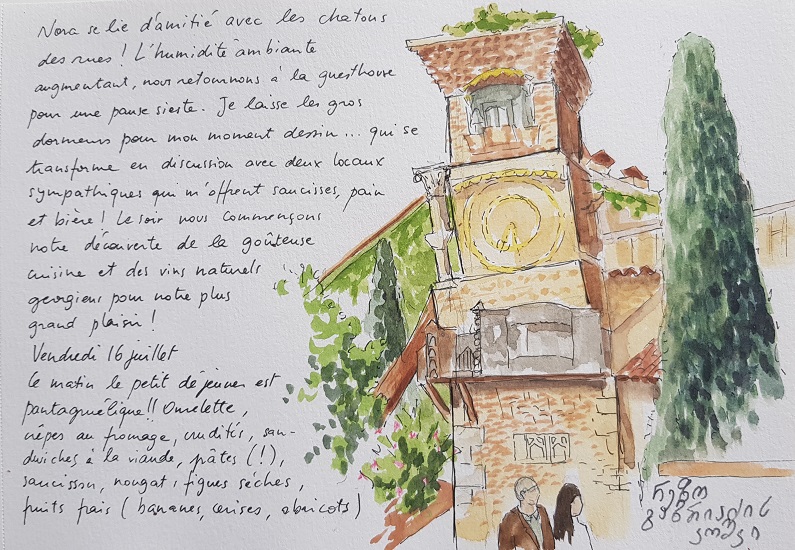 Nora se lie d'amitié avec les chatons
des rues ! L'humidité ambiante
augmentant, nous retournons à la guesthouse
pour une pause sieste. Je laisse les gros
dormeurs pour mon moment dessin... qui se
transforme en discussion avec deux locaux
sympathiques qui m'offrent saucisses, pain
et bière ! Le soir nous commençons
notre découverte de la goûteuse
cuisine et des vins naturels
georgiens pour notre plus
grand plaisir !
Vendredi 16 juillet
Le matin le petit déjeuner est
pantagruélique !! Omelette,
crêpes au fromage, crudités, san-
dwiches à la viande, pâtes (!),
saucisson, nougat, figues séches,
fruits frais (bananes, cerises, abricots)
რეზო
გაბრიაძის
კოშკი